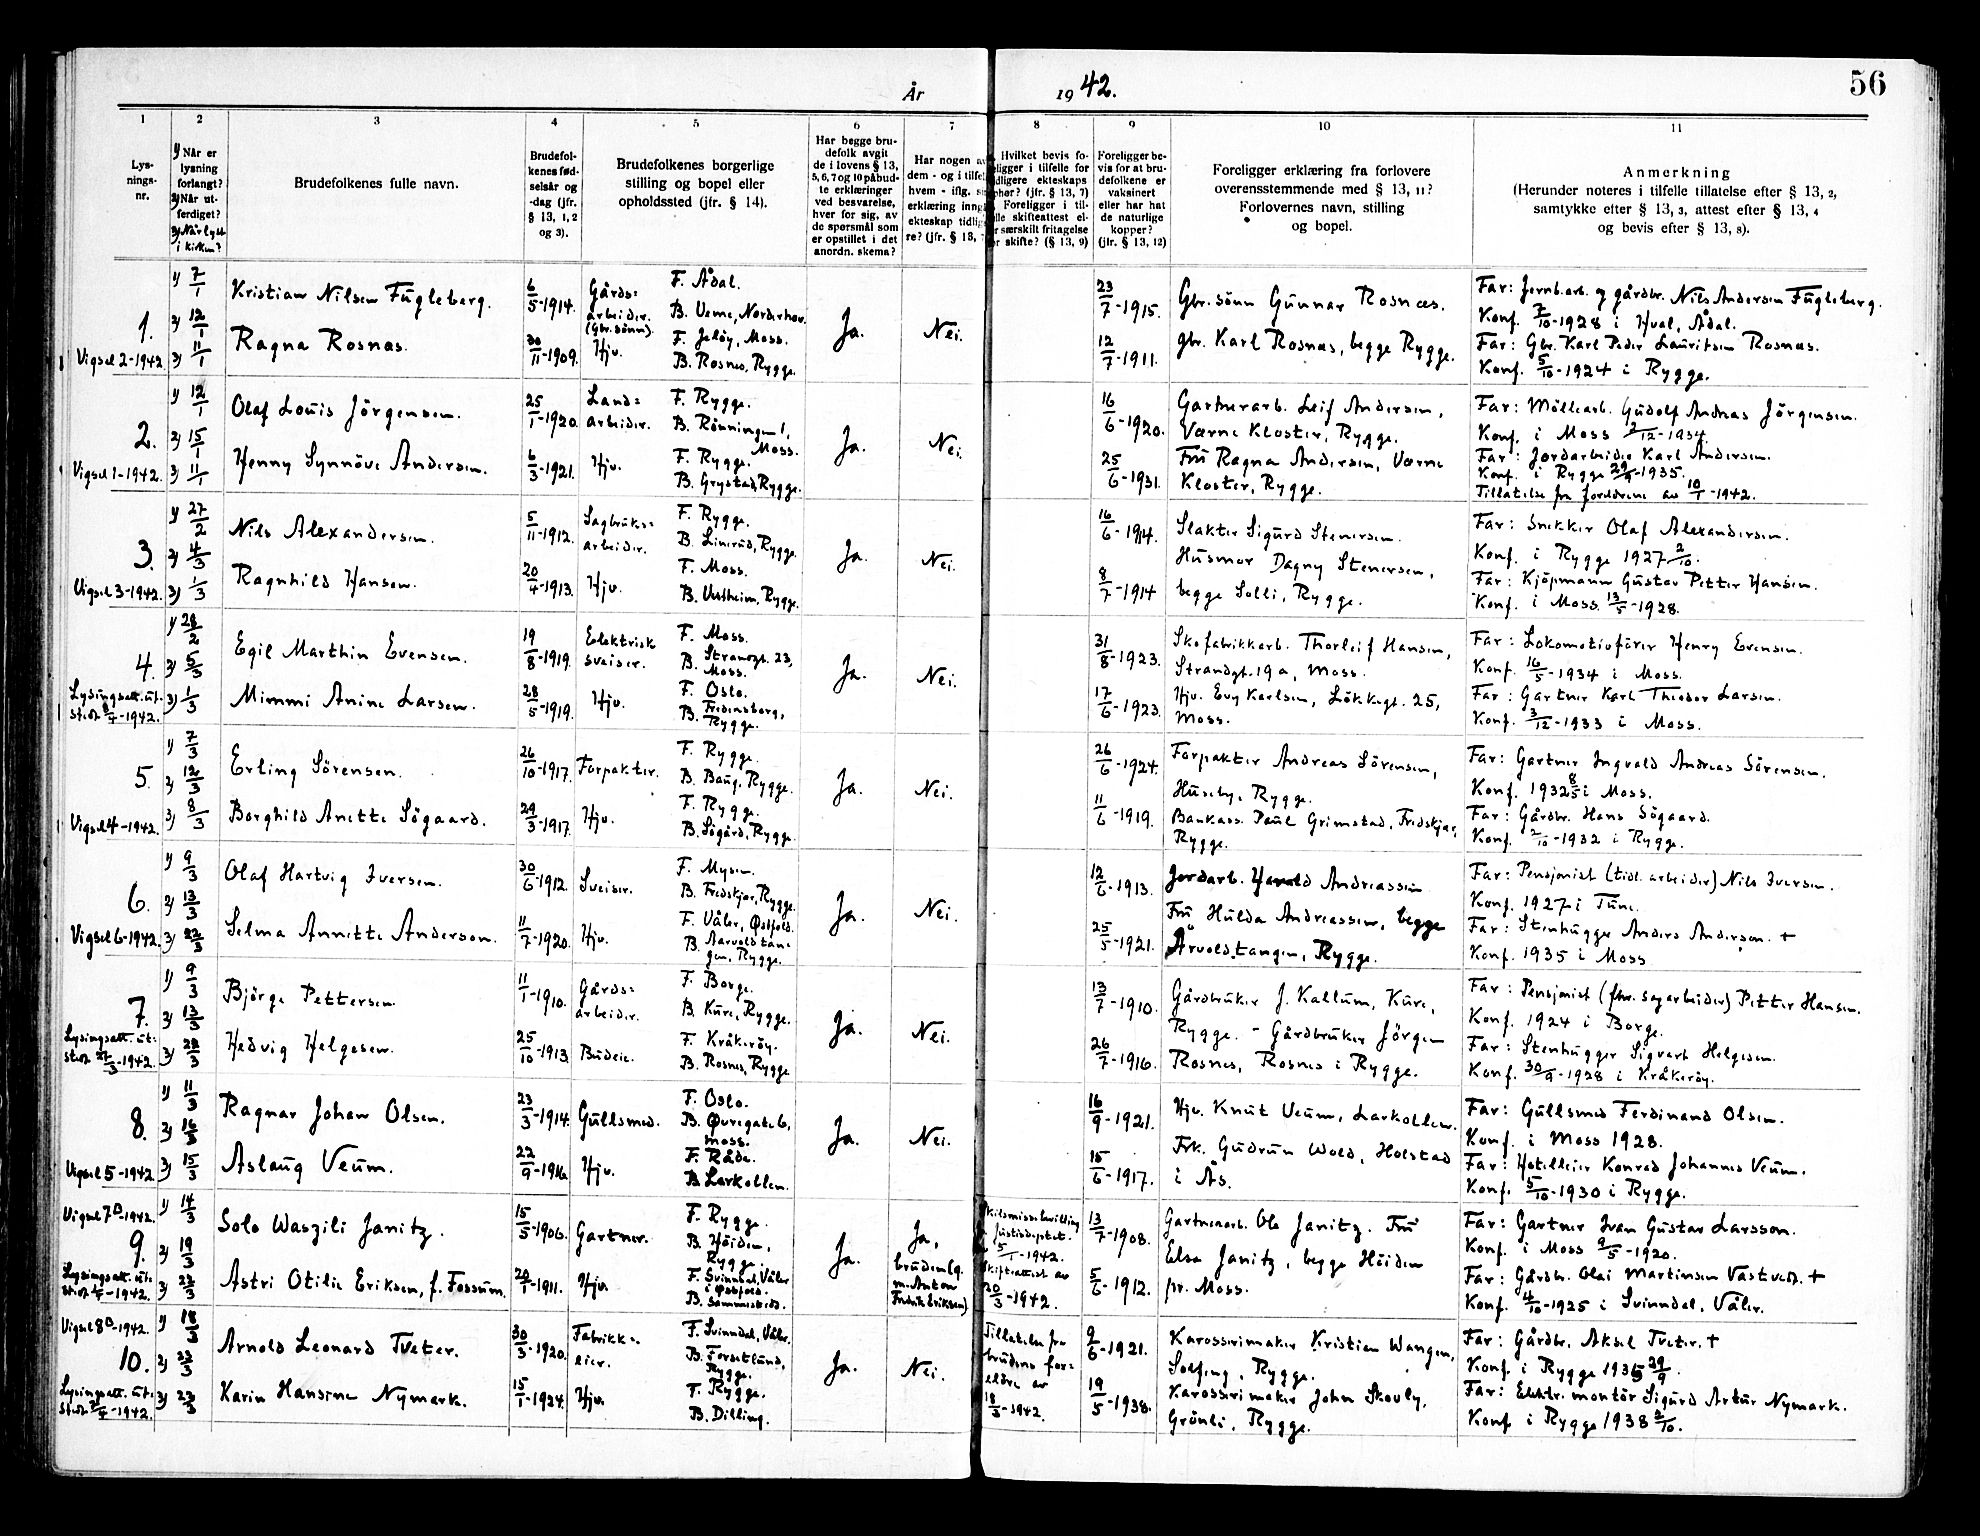 År 1942.
56
1 2 3 4 5 6 7 8 9 10 11
Lys-
nings-
nr.
1) Når er
lysning
forlangt?
2) Når ut-
ferdiget?
3) Når lyst
i kirken?
Brudefolkenes fulle navn.
Brudefol-
kenes fød-
selsår og
-dag (jfr.
§ 13, 1, 2
og 3).
Brudefolkenes borgerlige
stilling og bopel eller
opholdssted (jfr. § 14).
Har begge bru-
defolk avgit
de i lovens § 13,
5, 6, 7 og 10 påbud-
te erklæringer
ved besvarelse,
hver for sig, av
de spørsmål som
er opstillet i det
anordn. skema?
Har nogen av
dem - og i tilfel
hvem - iflg. s
erklæring inng
ekteskap tidlig
re? (jfr. § 13,
Hvilket bevis fo-
eligger i tilfelle for
idligere ekteskaps
phør? (jfr. § 13, 7)
Foreligger i til-
lle skifteattest el-
r særskilt fritagelse
or skifte? (§ 13, 9)
Foreligger be-
vis for at bru-
defolkene er
vaksinert
eller har hat
de naturlige
kopper?
(jfr. § 13, 12)
Foreligger erklæring fra forlovere
overensstemmende med § 13, 11?
Forlovernes navn, stilling
og bopel.
Anmerkning
(Herunder noteres i tilfelle tillatelse efter § 13, 2,
samtykke efter § 13, 3, attest efter § 13, 4
og bevis efter § 13, 8).
1.
Vigsel 2-1942.
1) 7/1
2) 12/1
3) 11/1
Kristian Nilsen Fugleberg.
Ragna Rosnæs.
6/5-1914.
30/11-1909.
Gårds=
arbeider.
(Gbr. sønn).
Hjv.
F. Ådal.
B. Veme, Norderhov.
F. Jeløy, Moss.
B. Rosnes, Rygge.
Ja.
Nei.
23/7-1915.
12/7-1911.
Gbr. sønn Gunnar Rosnæs.
gbr. Karl Rosnæs, begge Rygge.
Far: Jernb.arb. og gårdbr. Nils Andersen Fugleberg.
Konf. 7/10-1928 i Hval, Ådal.
Far: Gbr. Karl Peder Lauritsen Rosnæs.
Konf. 5/10-1924 i Rygge.
2.
Vigsel 1-1942.
1) 12/1
2) 15/1
3) 11/1
Olaf Louis Jörgensen.
Henny Synnöve Andersen.
25/1-1920.
6/3-1921.
Land=
arbeider.
Hjv.
F. Rygge.
B. Rönningen 1,
Moss.
F. Rygge.
B. Grystad, Rygge.
Ja.
Nei.
16/6-1920.
25/6-1931.
Gartnerarb. Leif Andersen,
Værne Kloster, Rygge.
Fru Ragna Andersen, Værne
Kloster, Rygge.
Far: Möllearb. Gudolf Andreas Jörgensen.
Konf. i Moss 2/12-1934.
Far: Jordarbeider Karl Andersen.
Konf. i Rygge 29/9-1935.
Tillatelse fra foreldrene av 10/1-1942.
3.
Vigsel 3-1942.
1) 27/2
2) 4/3
3) 1/3
Nils Alexandersen.
Ragnhild Hansen.
5/11-1912.
20/4-1913.
Sagbruks=
arbeider.
Hjv.
F. Rygge.
B. Linerud, Rygge.
F. Moss.
B. Vestheim, Rygge.
Ja.
Nei.
16/6-1914.
8/7-1914
Slakter Sigurd Stenersen.
Husmor Dagny Stenersen,
begge Solli, Rygge.
Far: Snekker Olaf Alexandersen.
Konf. i Rygge 1927 2/10.
Far: Kjöpmann Gustav Petter Hansen.
Konf. i Moss 13/5-1928.
4.
Lysingsatt. ut-
sted. 8/4-1942.
1) 28/2
2) 5/3
3) 1/3
Egil Marthin Evensen.
Mimmi Anine Larsen.
19/8-1919.
28/5-1919.
Elektrisk
sveiser.
Hjv.
F. Moss.
B. Strandgt. 23,
Moss.
F. Oslo.
B. Fredensborg,
Rygge.
Ja.
Nei.
31/8-1923.
17/6-1923.
Skofabrikkarb. Thorleif Hansen,
Strandgt. 19a, Moss.
Hjv. Evy Karlsen, Lökkegt. 25,
Moss.
Far: Lokomotivfører Henry Evensen.
Konf. 16/5-1934 i Moss.
Far: Gartner Karl Theodor Larsen.
Konf. 3/12-1933 i Moss.
5.
Vigsel 4-1942.
1) 7/3
2) 12/3
3) 8/3
Erling Sörensen.
Borghild Anette Sögaard.
26/10-1917.
24/3-1917.
Forpakter.
Hjv.
F. Rygge.
B. Baug, Rygge.
F. Rygge.
B. Sögård, Rygge
Ja.
Nei.
26/6-1924.
11/6-1919.
Forpakter Andreas Sörensen,
Huseby, Rygge.
Bankass. Paul Grimstad, Fredskjær,
Rygge.
Far: Gartner Ingvald Andreas Sörensen.
Konf. 1932 8/5 i Moss.
Far: Gårdbr. Hans Sögaard.
Konf. 2/10-1932 i Rygge.
6.
Vigsel 6-1942.
1) 9/3
2) 13/3
3) 22/3
Olaf Hartvig Iversen.
Selma Annette Anderson.
30/6-1912.
11/7-1920.
Sveiser.
Hjv.
F. Mysen.
B. Fredskjær, Rygge.
F. Våler, Østfold.
B. Aarvoldtan=
gen, Rygge.
Ja.
Nei.
12/6-1913.
25/5-1921.
Jordarb. Harald Andreassen.
Fru Hulda Andreassen, begge
Årvoldtangen, Rygge.
Far: Pensjonist (tidl. arbeider) Nils Iversen.
Konf. 1927 i Tune.
Far: Stenhugger Anders Anderson. +
Konf. 1935 i Moss
7.
Lysingsatt. ut-
sted. 27/3-1942.
1) 9/3
2) 13/3
3) 22/3
Björge Pettersen.
Hedvig Helgesen.
11/1-1910.
25/10-1913
Gårds=
arbeider.
Budeie.
F. Borge.
B. Kure, Rygge.
F. Kråkeröy.
B. Rosnes, Rygge
Ja.
Nei.
13/7-1910.
26/7-1916.
Gårdbruker J. Kallum, Kure,
Rygge. - Gårdbruker Jörgen
Rosnes, Rosnes i Rygge.
Far: Pensjonist (fhv. sagarbeider) Petter Hansen.
Konf. 1924 i Borge.
Far: Stenhugger Sigvart Helgesen.
Konf. 30/9-1928 i Kråkeröy.
8.
Vigsel 5-1942
1) 11/3
2) 16/3
3) 15/3
Ragnar Johan Olsen.
Aslaug Veum.
23/3-1914.
22/9-1916.
Gullsmed.
Hjv.
F. Oslo.
B. Øvregate 6,
Moss.
F. Råde.
B. Larkollen.
Ja.
Nei.
16/9-1921.
15/6-1917.
Hjv. Knut Veum, Larkollen.
Frk. Gudrun Wold, Holstad
i Ås.
Far: Gullsmed Ferdinand Olsen.
Konf. i Moss 1928.
Far: Hotelleier Konrad Johannes Veum.
Konf. 5/10-1930 i Rygge.
Vigsel 7B-1942.
9.
Lysingsatt. ut-
1) 14/3
2) 19/3
3) 22/3
Solo Waszili Janitz.
Astri Otilie Eriksen, f. Fossum.
15/5-1906.
24/7-1911.
Gartner.
Hjv.
F. Rygge.
B. Höiden,
Rygge.
F. Svinndal, Våler
i Østfold.
B. Sammesteds.
Ja.
Ja,
bruden (g.
m. Anton
Fredrik Eriksen)
kilsmissebevilling
Justisdeptet.
5/1-1942.
Skifteattest av
20/3-1942.
13/7-1908.
5/6-1912.
Gartnerarb. Ole Janitz. Fru
Elsa Janitz, begge Höiden
pr. Moss.
Far: Gartner Ivan Gustav Larsson.
Konf. i Moss 9/5-1920.
Far: Gårdbr. Olai Martinsen Vastvedt. +
Konf. 4/10-1925 i Svinndal, Våler.
Vigsel 8B-1942.
10.
Lysingsatt. ut-
1) 18/3
2) 23/3
3) 22/3
Arnold Leonard Tveter.
Karin Hansine Nymark.
30/3-1920.
15/1-1924.
Fabrikk=
eier.
Hjv.
F. Svinndal, Våler.
B. Forsetlund,
Rygge.
F. Rygge.
B. Dilling.
Ja.
Nei.
Tillatelse fra
brudens for=
eldre av
18/3-1942.
9/6-1921.
19/5-1938.
Karosserimaker Kristian Wangen,
Solfeng, Rygge.
Karosserimaker John Skovly,
Grönli, Rygge.
Far: Gårdbr. Aksel Tveter. +
Konf. i Rygge 1935 29/9.
Far: Elektr. montör Sigurd Artur Nymark.
Konf. i Rygge 1938 2/10.